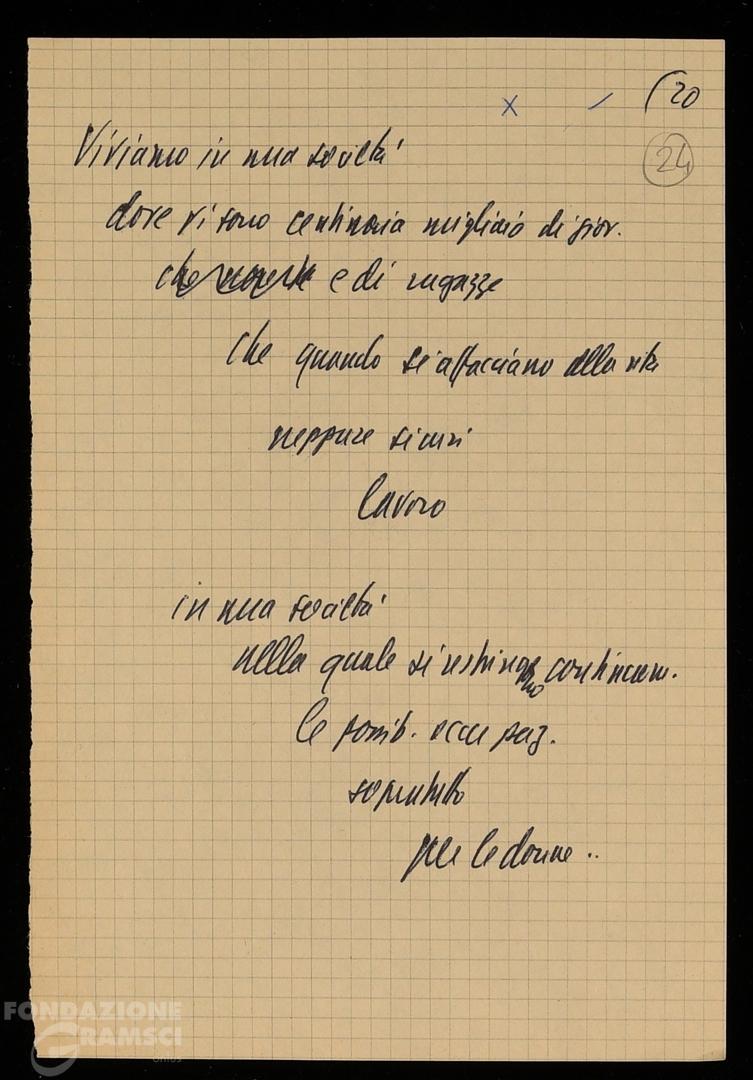 x / (20
24
Viviamo in una società
dove vi sono centinaia migliaia di giov.
che e di ragazze
che quando si affacciano alla vita
neppure
lavoro
in una società
nella quale si restringono continuam.
le possib. occupaz.
sopratutto
per le donne ..
FONDAZIONE
GRAMSCI
onlus